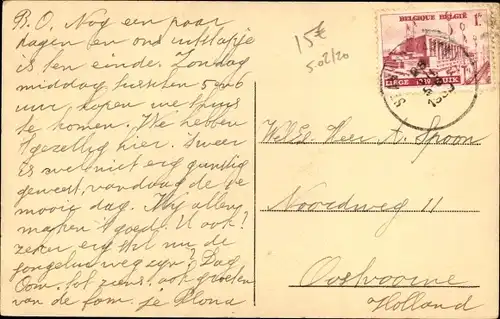 B.O. Nog een paar
dagen en ons uitstapje
is ten einde. Zondag
middag tusschen 5 en 6
uur, hopen we thuis
te komen. We hebben
't gezellig hier. 't weer
is wel niet erg gunstig
geweest, vandaag de 1e
mooie dag. Wij allen
maken 't goed. U ook?
zeker erg stil nu de
jongelui weg zijn? Dag
Oom, tot ziens, ook groeten
van de fam. je Plona
15€
5.02/20
BELGIQUE BELGIË
LIÈGE 1939 LUIK
WelEd. Heer A. Spoon
Noordweg 11
Oostvoorne
Holland